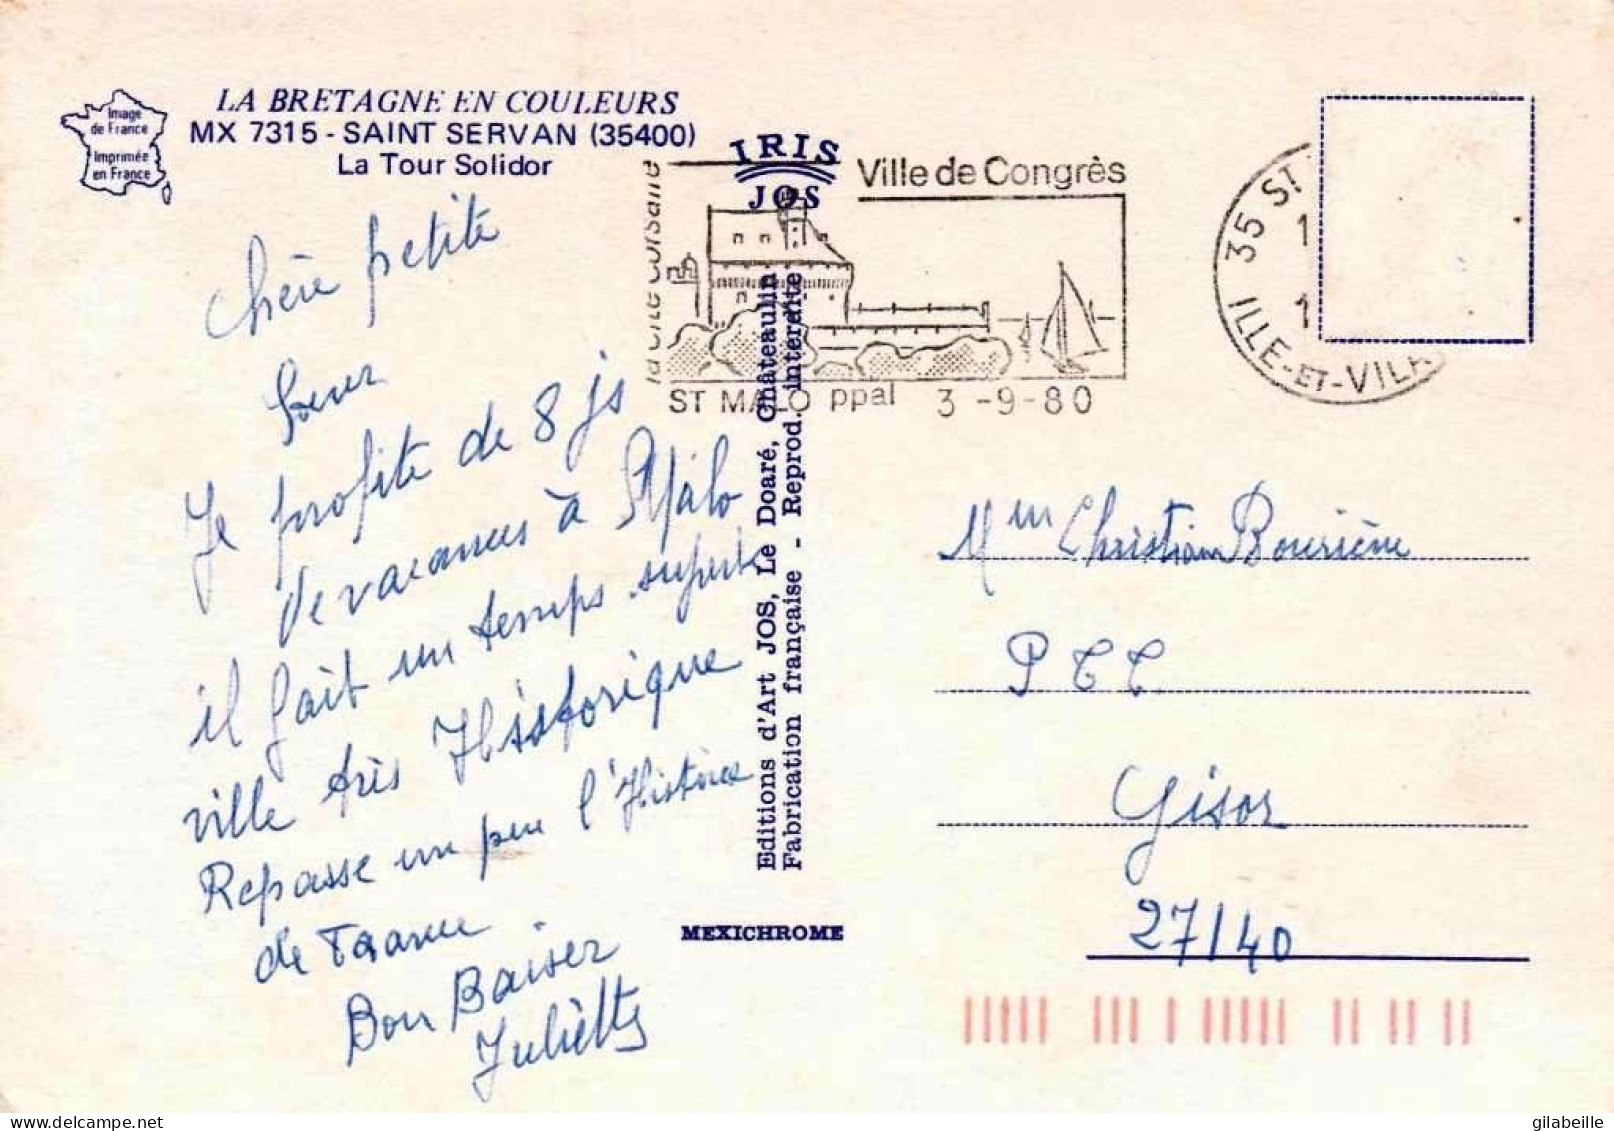 Image
de France
Imprimée
en France
LA BRETAGNE EN COULEURS
MX 7315 - SAINT SERVAN (35400)
La Tour Solidor
IRIS
JOS
Chère petite
Sœur
Je profite de 8 js
de vacances à St Malo
il fait un temps superbe
ville très Historique
Repasse un peu l'Histoire
de France
Bon Baiser
Juliette
Editions d'Art JOS, Le Doaré, Châteaulin
Fabrication française - Reprod. interdite
MEXICHROME
la Cité Corsaire
Ville de Congrès
ST MALO ppal 3-9-80
35 ST
ILLE-ET-VILA
Mme Christian Bourienne
PTT
Gisors
27140
gilabeille